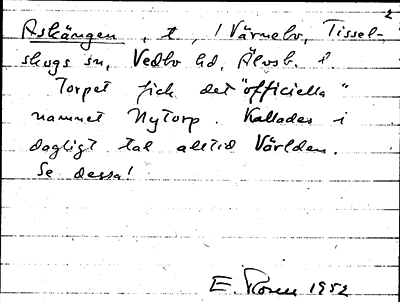 2
Askängen, t, / Värnebo, Tissel-
skogs sn, Vedbo hd, Älvsb. l.
Torpet fick det "officiella"
namnet Nytorp. Kallades i
dagligt tal alltid Världen.
Se dessa!
E. Rosén 1952